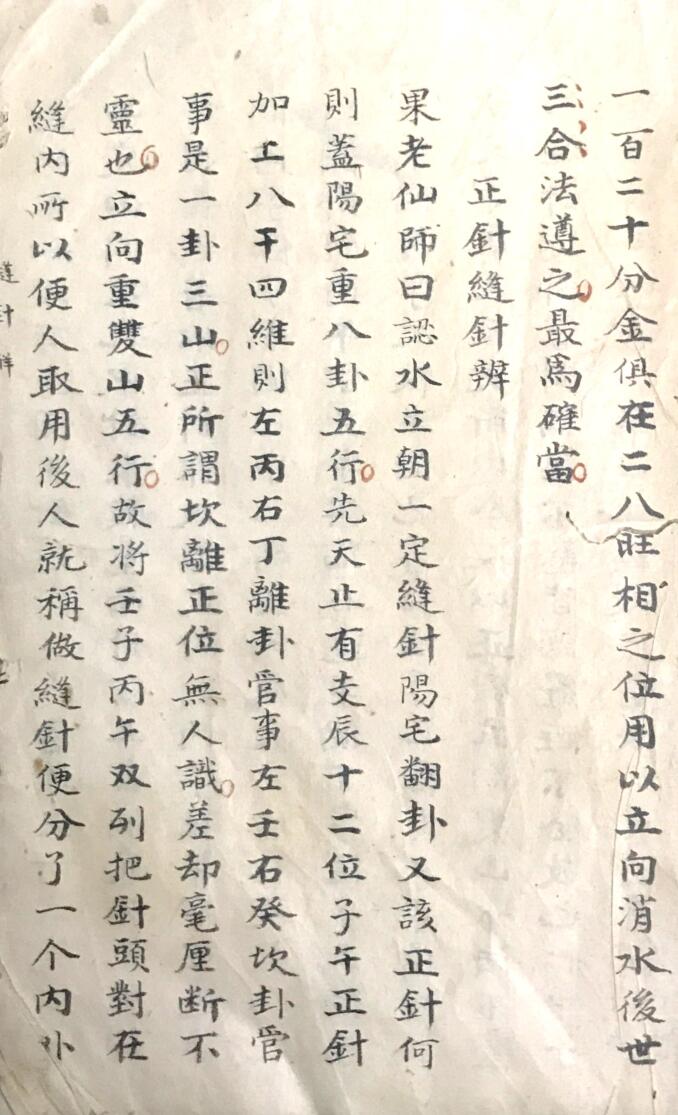 一百二十分金俱在二八旺相之位用以立向消水後世
三合法遵之最為確當
正針縫針辨
果老仙師曰認水立朝一定縫針陽宅翻卦又該正針何
則蓋陽宅重八卦五行先天止有支辰十二位子午正針
加上八干四維則左丙右丁離卦管事左壬右癸坎卦管
事是一卦三山正所謂坎離正位無人識差却毫厘断不
靈也立向重雙山五行故将壬子丙午双列把針頭對在
縫內所以便人取用後人就稱做縫針便分了一个内外